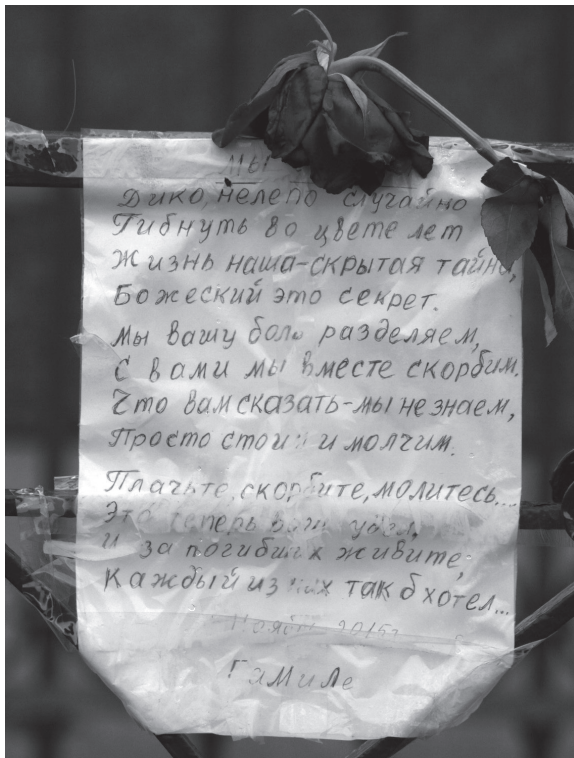 МЫ
Дико, нелепо случайно
Гибнуть во цвете лет
Жизнь наша-скрытая тайна,
Божеский это секрет.
Мы вашу боль разделяем,
С вами мы вместе скорбим.
Что вам сказать-мы не знаем,
Просто стоим и молчим.
Плачьте, скорбите, молитесь...
Это теперь ваш удел,
И за погибших живите;
Каждый из них так б хотел...
Ноябрь 2015г
ГаМиЛе